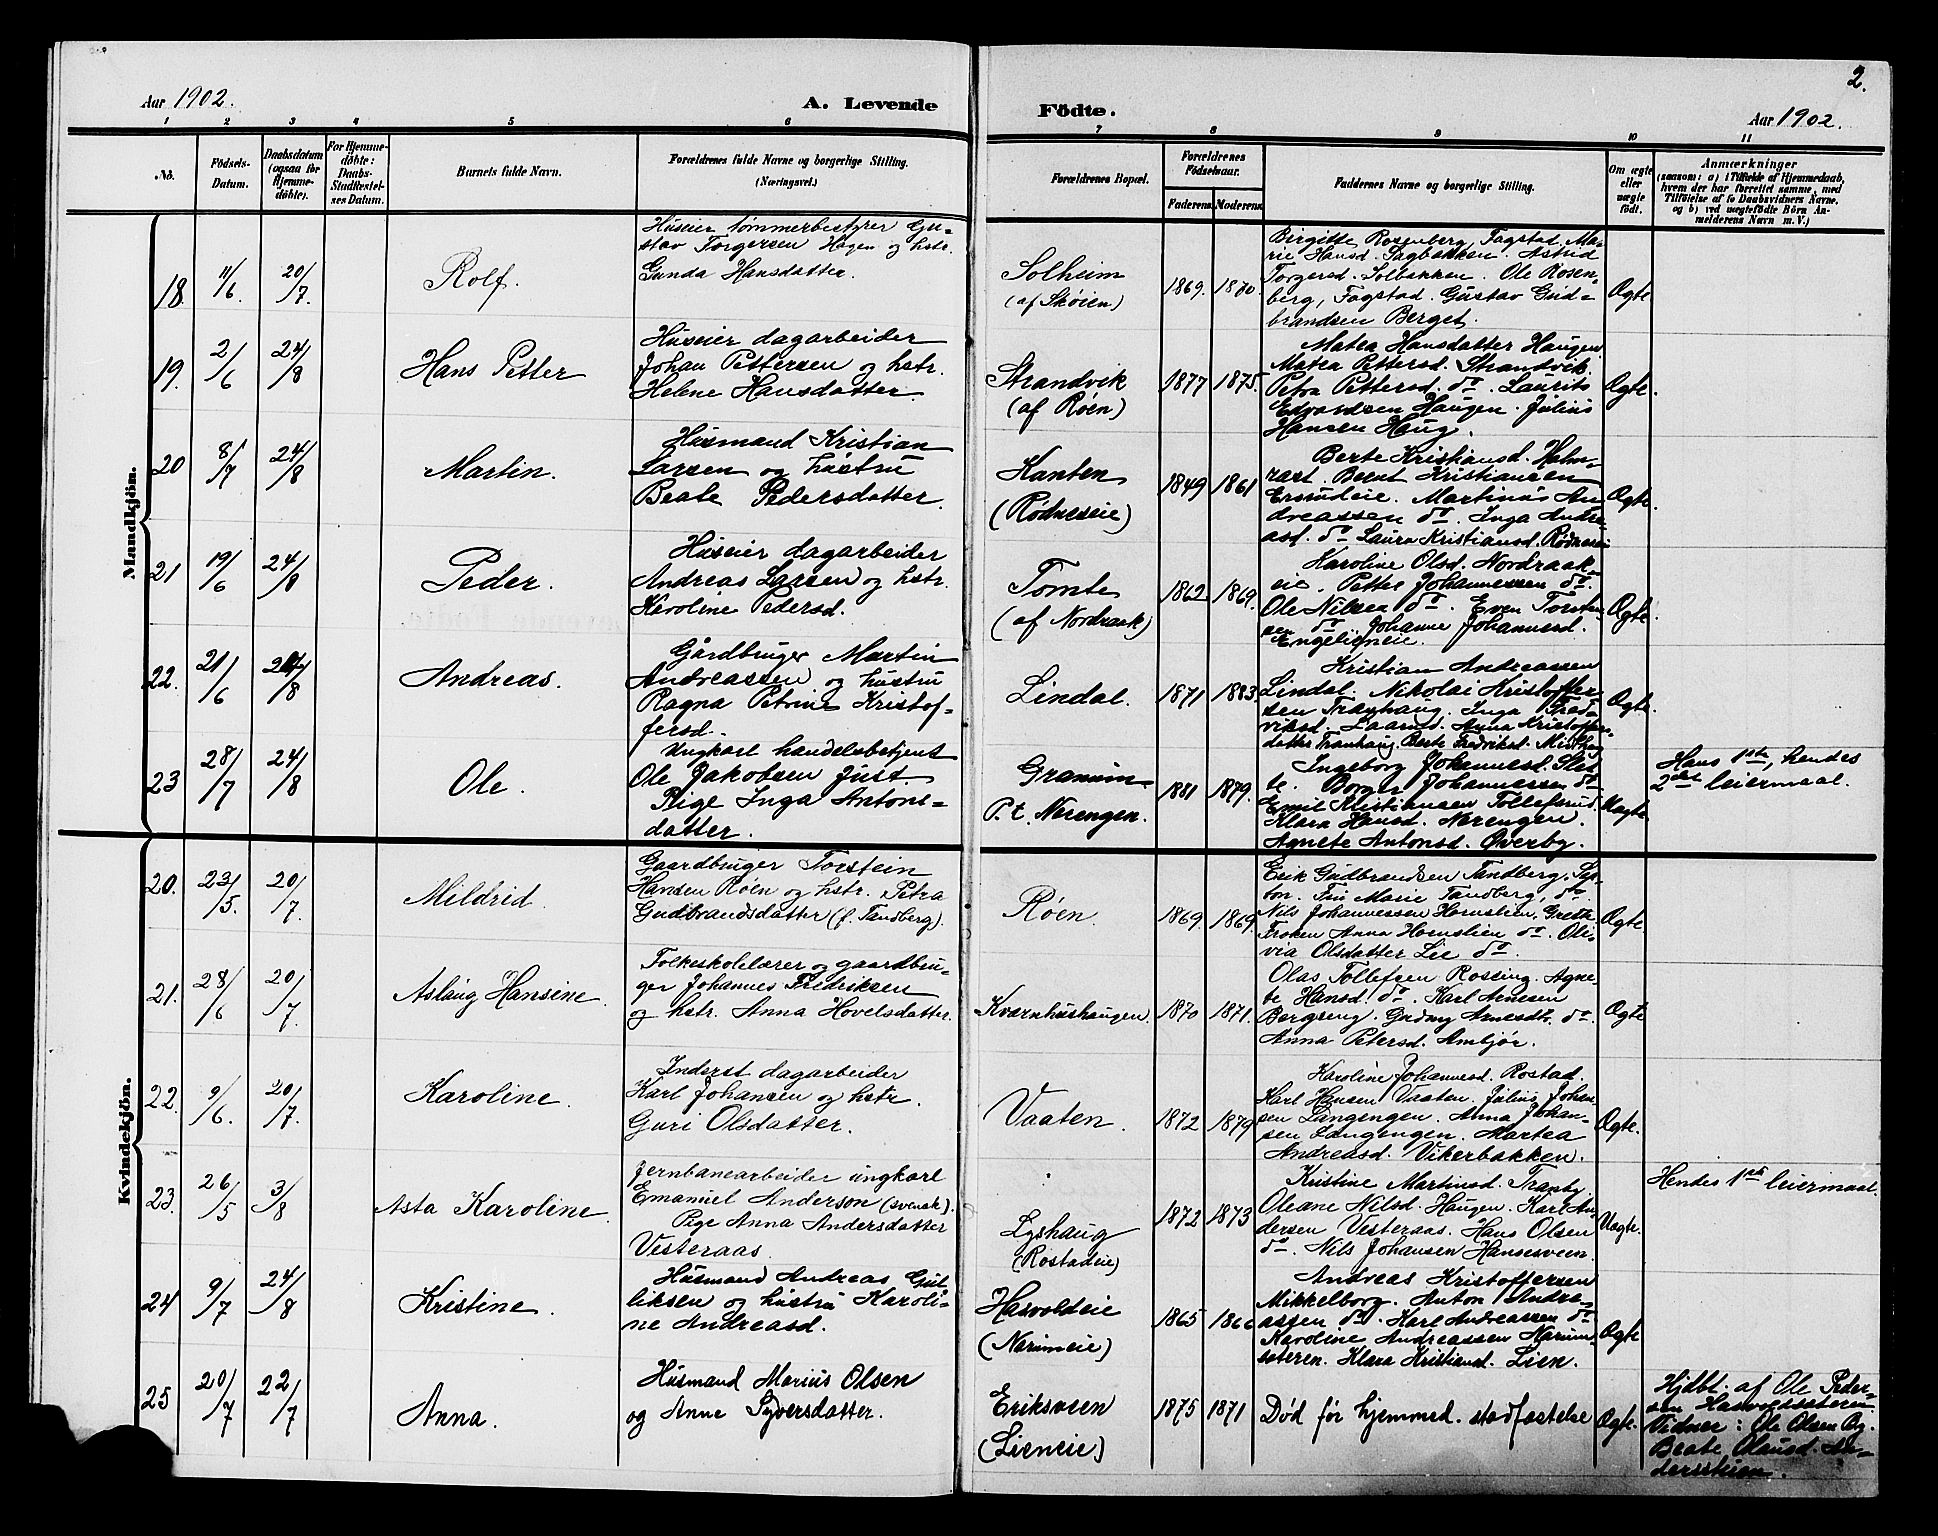 2.
Aar 1902.
A. Levende
Födte.
Aar 1902.
1 2 3 4 5 6 7 8 9 10 11
No.
Födsels-
Datum.
Daabsdatum
(ogsaa for
Hjemme-
döbte).
For Hjemme-
döbte:
Daabs-
Stadfæstel-
ses Datum.
Barnets fulde Navn.
Forældrenes fulde Navne og borgerlige Stilling.
(Næringsvei.)
Forældrenes Bopæl.
Forældrenes
Födselsaar.
Faderens. Moderens.
Faddernes Navne og borgerlige Stilling.
Om ægte
eller
uægte
födt.
Anmærkninger
(saasom: a) i Tilfælde af Hjemmedaab,
hvem der har forrettet samme, med
Tilföielse af to Daabsvidners Navne,
og b) ved uægtefödte Börn An-
melderens Navn m. V.)
Mandkjön.
18. 11/6 20/7. Rolf.
Huseier tømmerbestyrer Gu-
stav Torgersen Hagen og hstr.
Gunda Hansdatter.
Solheim
(af Skøien)
1869. 1870.
Birgitte Rosenberg, Fagstad. Ma-
rie Hansd. Fagbakken. Astrid
Torgersd. Solbakken. Ole Rosen-
berg, Fagstad. Gustav Gud-
brandsen Berget.
Ægte
19. 2/6 24/8 Hans Petter
Huseier dagarbeider
Johan Pettersen og hstr.
Helene Hansdatter.
Strandvik
(af Røen)
1877 1875.
Matea Hansdatter Haugen
Matea Pettersd. Strandvik.
Petra Pettersd. do. Laurits
Edvardsen Haugen. Julius
Hansen Haug.
Ægte.
20 8/7 24/8 Martin.
Husmand Kristian
Larsen og hustru
Beate Pedersdatter.
Kanten
(Rødneseie)
1849 1861
Berte Kristiansd. Holm-
rast. Bernt Kristiansen
Ersrudeie. Martinus An-
dreassen do. Inga Andre-
asd. do Laura Kristiansd. Rødneseie
Ægte.
21 19/6 24/8 Peder.
Huseier dagarbeider
Andreas Larsen og hstr.
Karoline Pedersd.
Tomte
(af Nordraak)
1862 1869.
Karoline Olsd. Nordraak-
eie. Petter Johannessen do.
Ole Nilsen do. Even Torsten-
sen do. Johanne Johannesd.
Engelieneie.
Ægte.
22. 21/6 24/8 Andreas.
Gårdbruger Martin
Andreassen og hustru
Ragna Petrine Kristof-
fersd.
Lindal.
1871 1883.
Kristian Andreassen
Lindal. Nikolai Kristoffer-
sen Tranhaug. Inga Fred-
riksd. Anna Kristoffers-
datter Tranhaug. Berte Fredriksd.
Ægte.
23 28/7 24/8 Ole.
Ungkarl handelsbetjent
Ole Jakobsen Just
Pige Inga Antons-
datter.
Granum
P. t. Nerengen.
1881 1879.
Ingeborg Johannesd.
Borger Johannessen do
Emil Kristiansen Tollefsrud.
Klara Hansd. Nerengen.
Agnete Antonsd. Øverby.
Uægte.
Hans 1ste, hendes
2det leiermaal.
Kvindekjön.
20. 23/5. 20/7. Mildrid.
Gaardbruger Torstein
Hansen Røen og hstr. Petra
Gudbrandsdatter (f. Tandberg).
Røen.
1869. 1869.
Erik Gudbrandsen Tandberg.
Marie Tandberg, do.
Nils Johannessen Hornslien,
Frøken Anna Hornslien do. Oli-
via Olsdatter Lie do.
Ægte.
21. 28/6 20/7. Aslaug Hansine.
Folkeskolelærer og gaardbru-
ger Johannes Frederiksen
og hstr. Anna Hovelsdatter.
Kvernhushaugen.
1870 1871.
Olas Tollefsen Rossing. Agne-
te Hansd. do. Karl Arnesen
Bergseng. Gudny Arnesdt. do.
Anna Petersd. Ambjør.
Ægte
22. 9/6. 20/7. Karoline.
Inderst dagarbeider
Karl Johansen og hstr.
Guri Olsdatter.
Vaaten.
1872 1879
Karoline Johannesd. Rostad.
Karl Hansen Vaaten. Julius Johan-
sen Langengen. Anna Johan-
sen Langengen. Martea
Andreasd. Vikerbakken.
Ægte.
23. 26/5 3/8 Asta Karoline.
Jernbanearbeider ungkarl
Emanuel Anderson (svensk).
Pige Anna Andersdatter
Vesteraas.
Lyshaug
(Rostadeie)
1872 1873
Kristine Martinsd. Tranby.
Oleane Nilsd. Haugen. Karl An-
dersen Vesteraas. Hans Olsen
do. Nils Johansen Hansesveen.
Uægte.
Hendes 1ste leiermaal.
24 9/7 24/8 Kristine.
Husmand Andreas Gul-
liksen og hustru Karoli-
ne Andreasd.
Hasvoldeie
(Narumeie)
1865 1866
Andreas Kristoffersen
Mikkelborg. Anton Andre-
assen do. Karl Andreassen do
Karoline Andreassen Narum-
sæteren. Klara Kristiansd. Lien.
Ægte
25 20/7 22/7 Anna.
Husmand Marius Olsen
og Anne Syversdatter.
Eriksveen
(Lieneie)
1875 1871
Død før hjemmed. stadfæstelse
Ægte.
Hjdbt. af Ole Peder-
sen
Vidner: Ole Olsen By.
Beate Olausd. An-
dersstuen.